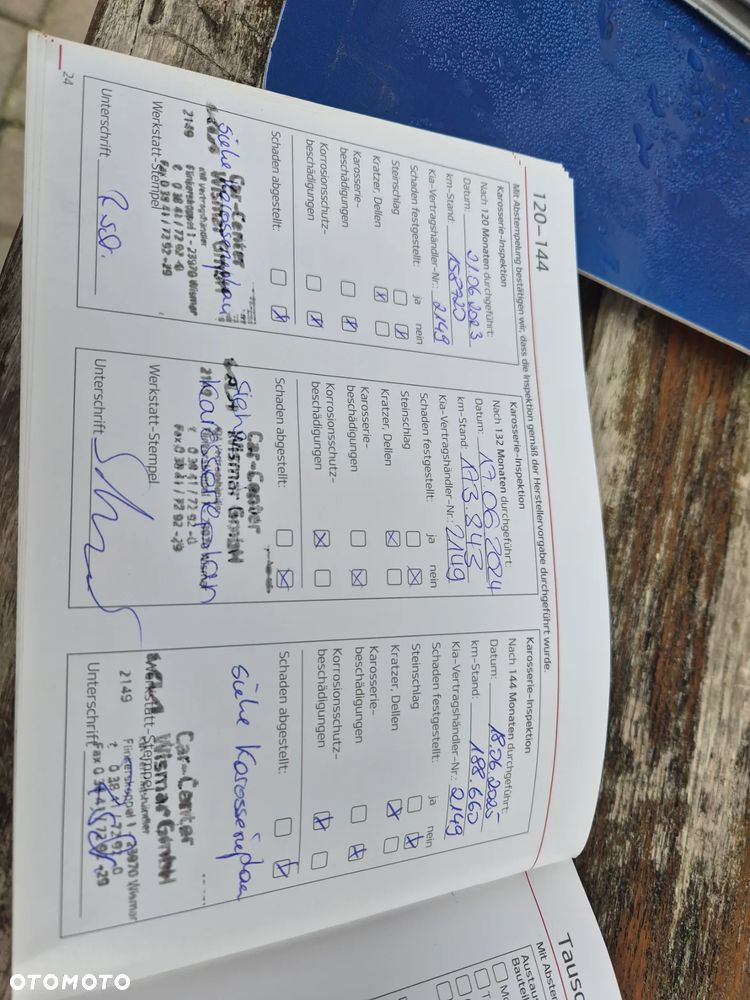 120–144
Mit Abstempelung bestätigen wir, dass die Inspektion gemäß der Herstellervorgabe durchgeführt wurde.
Karosserie-Inspektion
Nach 120 Monaten durchgeführt:
Datum: 01.06.2023
km-Stand: 158720
Kia-Vertragshändler-Nr.: 2149
Schaden festgestellt: ja nein
Steinschlag
Kratzer, Dellen
Karosserie-
beschädigungen
Korrosionsschutz-
beschädigungen
Schaden abgestellt:
siehe Karosserieplan
Car-Center
Wismar GmbH
Kia Vertragshändler
2149 Flinkerskoppel 1 - 23970 Wismar
t 0 38 41 / 72 92 -0
Fax 0 38 41 / 72 92 -29
Werkstatt-Stempel
Unterschrift
24
Karosserie-Inspektion
Nach 132 Monaten durchgeführt:
Datum: 17.06.2024
km-Stand: 173.843
Kia-Vertragshändler-Nr.: 2149
Schaden festgestellt: ja nein
Steinschlag
Kratzer, Dellen
Karosserie-
beschädigungen
Korrosionsschutz-
beschädigungen
Schaden abgestellt:
Siehe
Karosserieplan
Car-Center
Wismar GmbH
t 0 38 41 / 72 92 -0
Fax 0 38 41 / 72 92 -29
Werkstatt-Stempel
Unterschrift
Karosserie-Inspektion
Nach 144 Monaten durchgeführt:
Datum: 18.06.2025
km-Stand: 188.660
Kia-Vertragshändler-Nr.: 2149
Schaden festgestellt: ja nein
Steinschlag
Kratzer, Dellen
Karosserie-
beschädigungen
Korrosionsschutz-
beschädigungen
Schaden abgestellt:
siehe Karosserieplan
Car-Center
Wismar GmbH
Werkstatt-Stempel
2149 Flinkerskoppel 1 23970 Wismar
t 0 38 41 / 72 92 -0
Fax 0 38 41 / 72 92 -29
Unterschrift
Tausc
Mit Abste
Austau
Bauteil
OTOMOTO